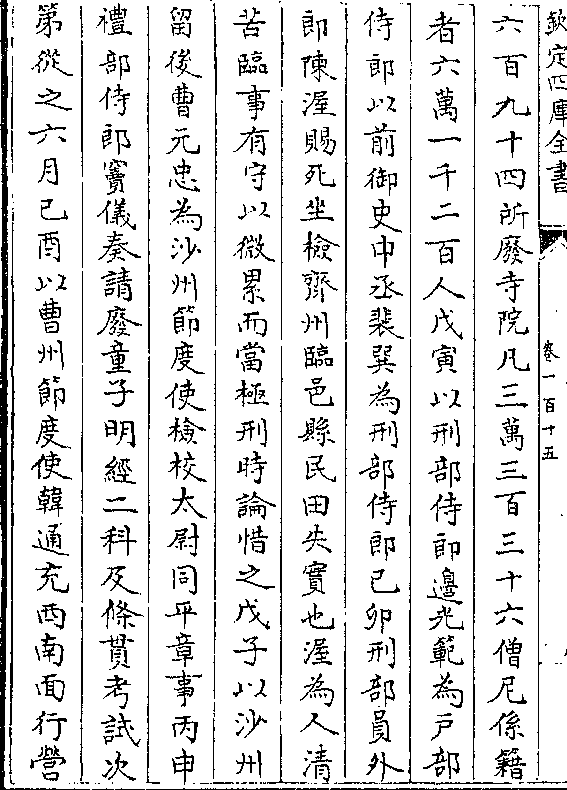 欽定四庫全書
卷一百十五
六百九十四所廢寺院凡三萬三百三十六僧尼係籍
者六萬一千二百人戊寅以刑部侍郎邊光範為戸部
侍郎以前御史中丞裴巽為刑部侍郎己卯刑部員外
郎陳渥賜死坐檢齊州臨邑縣民田失實也渥為人清
苦臨事有守以微累而當極刑時論惜之戊子以沙州
留後曹元忠為沙州節度使檢校太尉同平章事丙申
禮部侍郎竇儀奏請廢童子明經二科及條貫考試次
第從之六月己酉以曹州節度使韓通充西南面行營